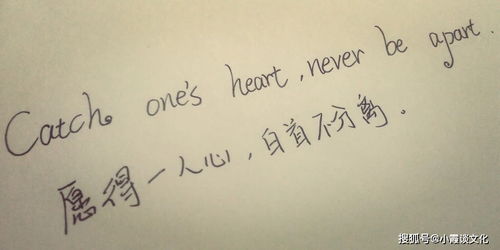 Catch one's heart, never be apart.
愿得一人心，白首不分离。
搜狐号@小霞谈文化